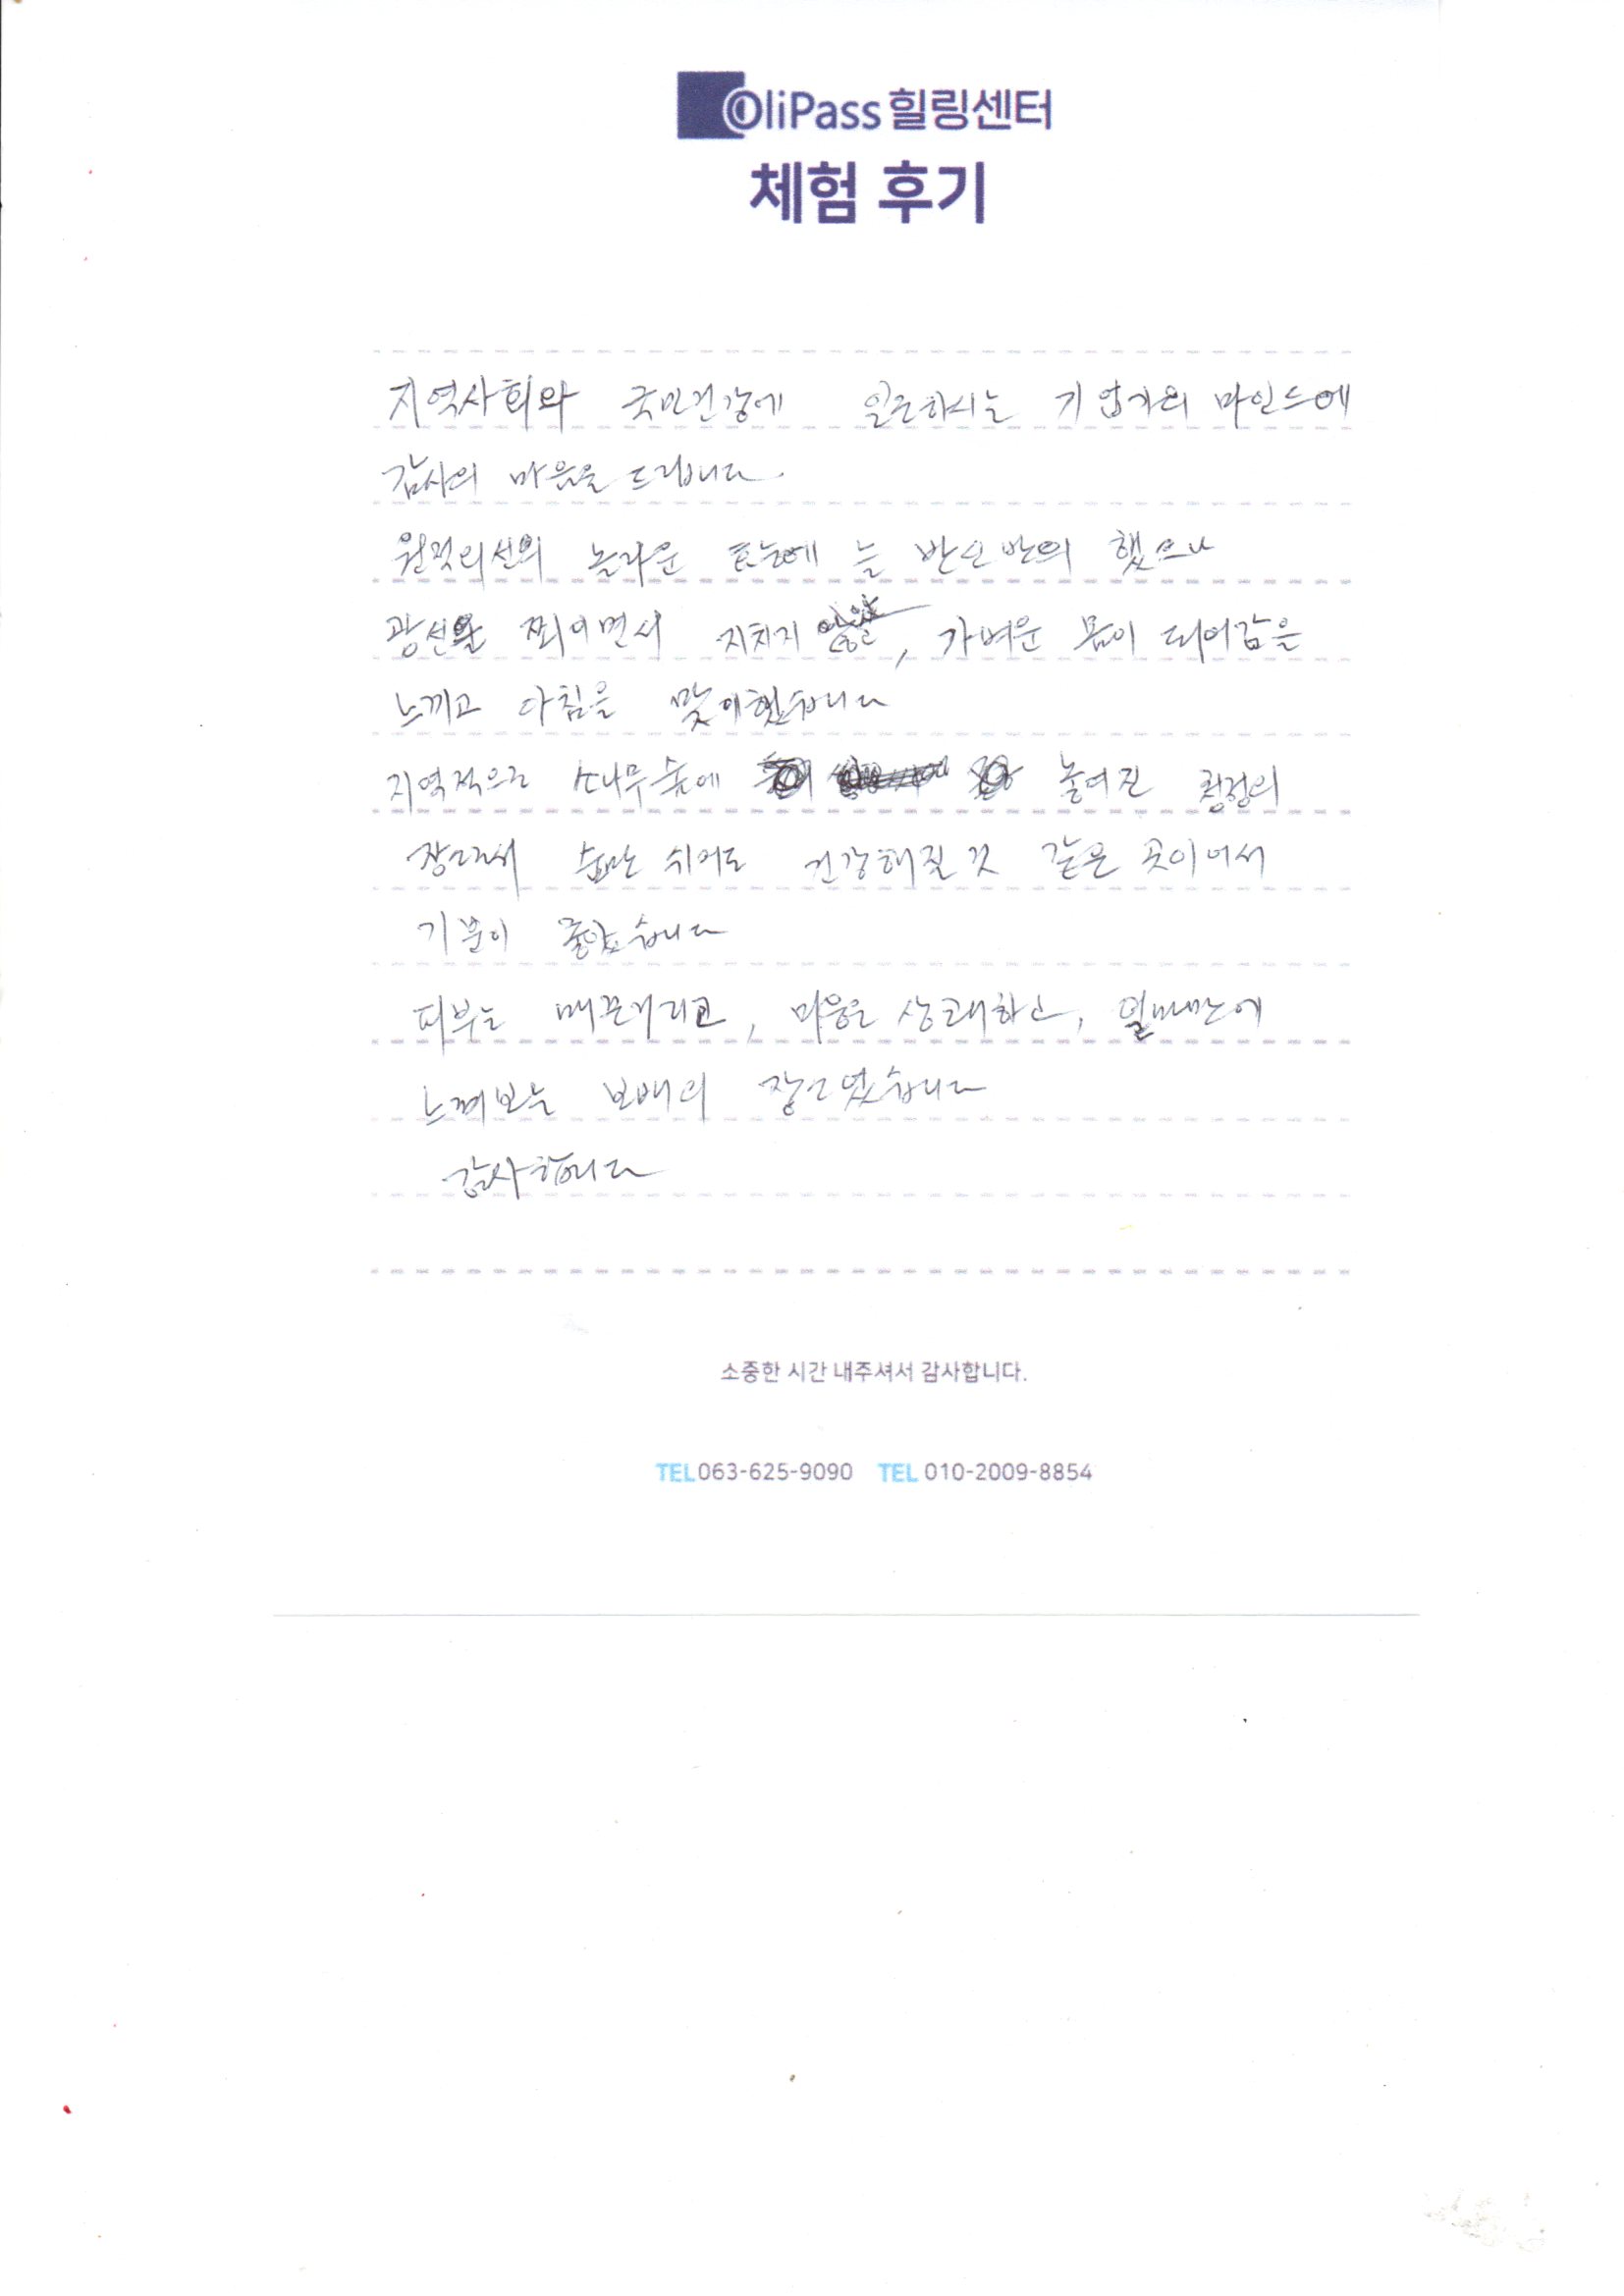 OliPass 힐링센터
체험 후기
지역사회와 국민건강에 일조하시는 기업가의 마인드에
감사의 마음을 드립니다.
원적외선의 놀라운 효능에 늘 반신반의 했으나
광선을 쬐이면서 지치지 않, 가벼운 몸이 되어감을
느끼고 아침을 맞이했습니다
지역적으로 소나무숲에 놓여진 청정의
장소라서 숨만 쉬어도 건강해질 것 같은 곳이어서
기분이 좋았습니다
피부는 매끈거리고, 마음은 상쾌하고, 얼마만에
느껴보는 보배의 장소였습니다
감사합니다
소중한 시간 내주셔서 감사합니다.
TEL 063-625-9090 TEL 010-2009-8854